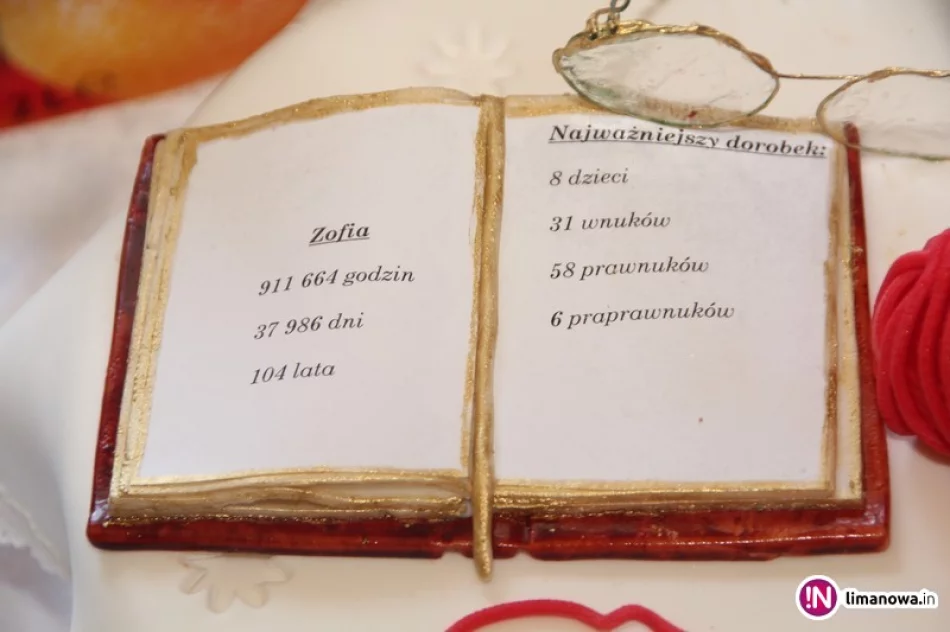 Zofia
911 664 godzin
37 986 dni
104 lata
Najważniejszy dorobek:
8 dzieci
31 wnuków
58 prawnuków
6 praprawnuków
!N limanowa.in